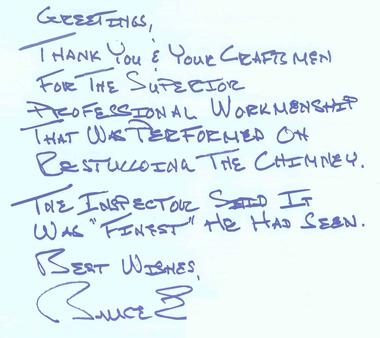 Greetings,
Thank You & Your Craftsmen
For The Superior
Professional Workmenship
That Was Performed On
Restuccoing The Chimney.
The Inspector Said It
Was "Finest" He Had Seen.
Best Wishes,
Bruce